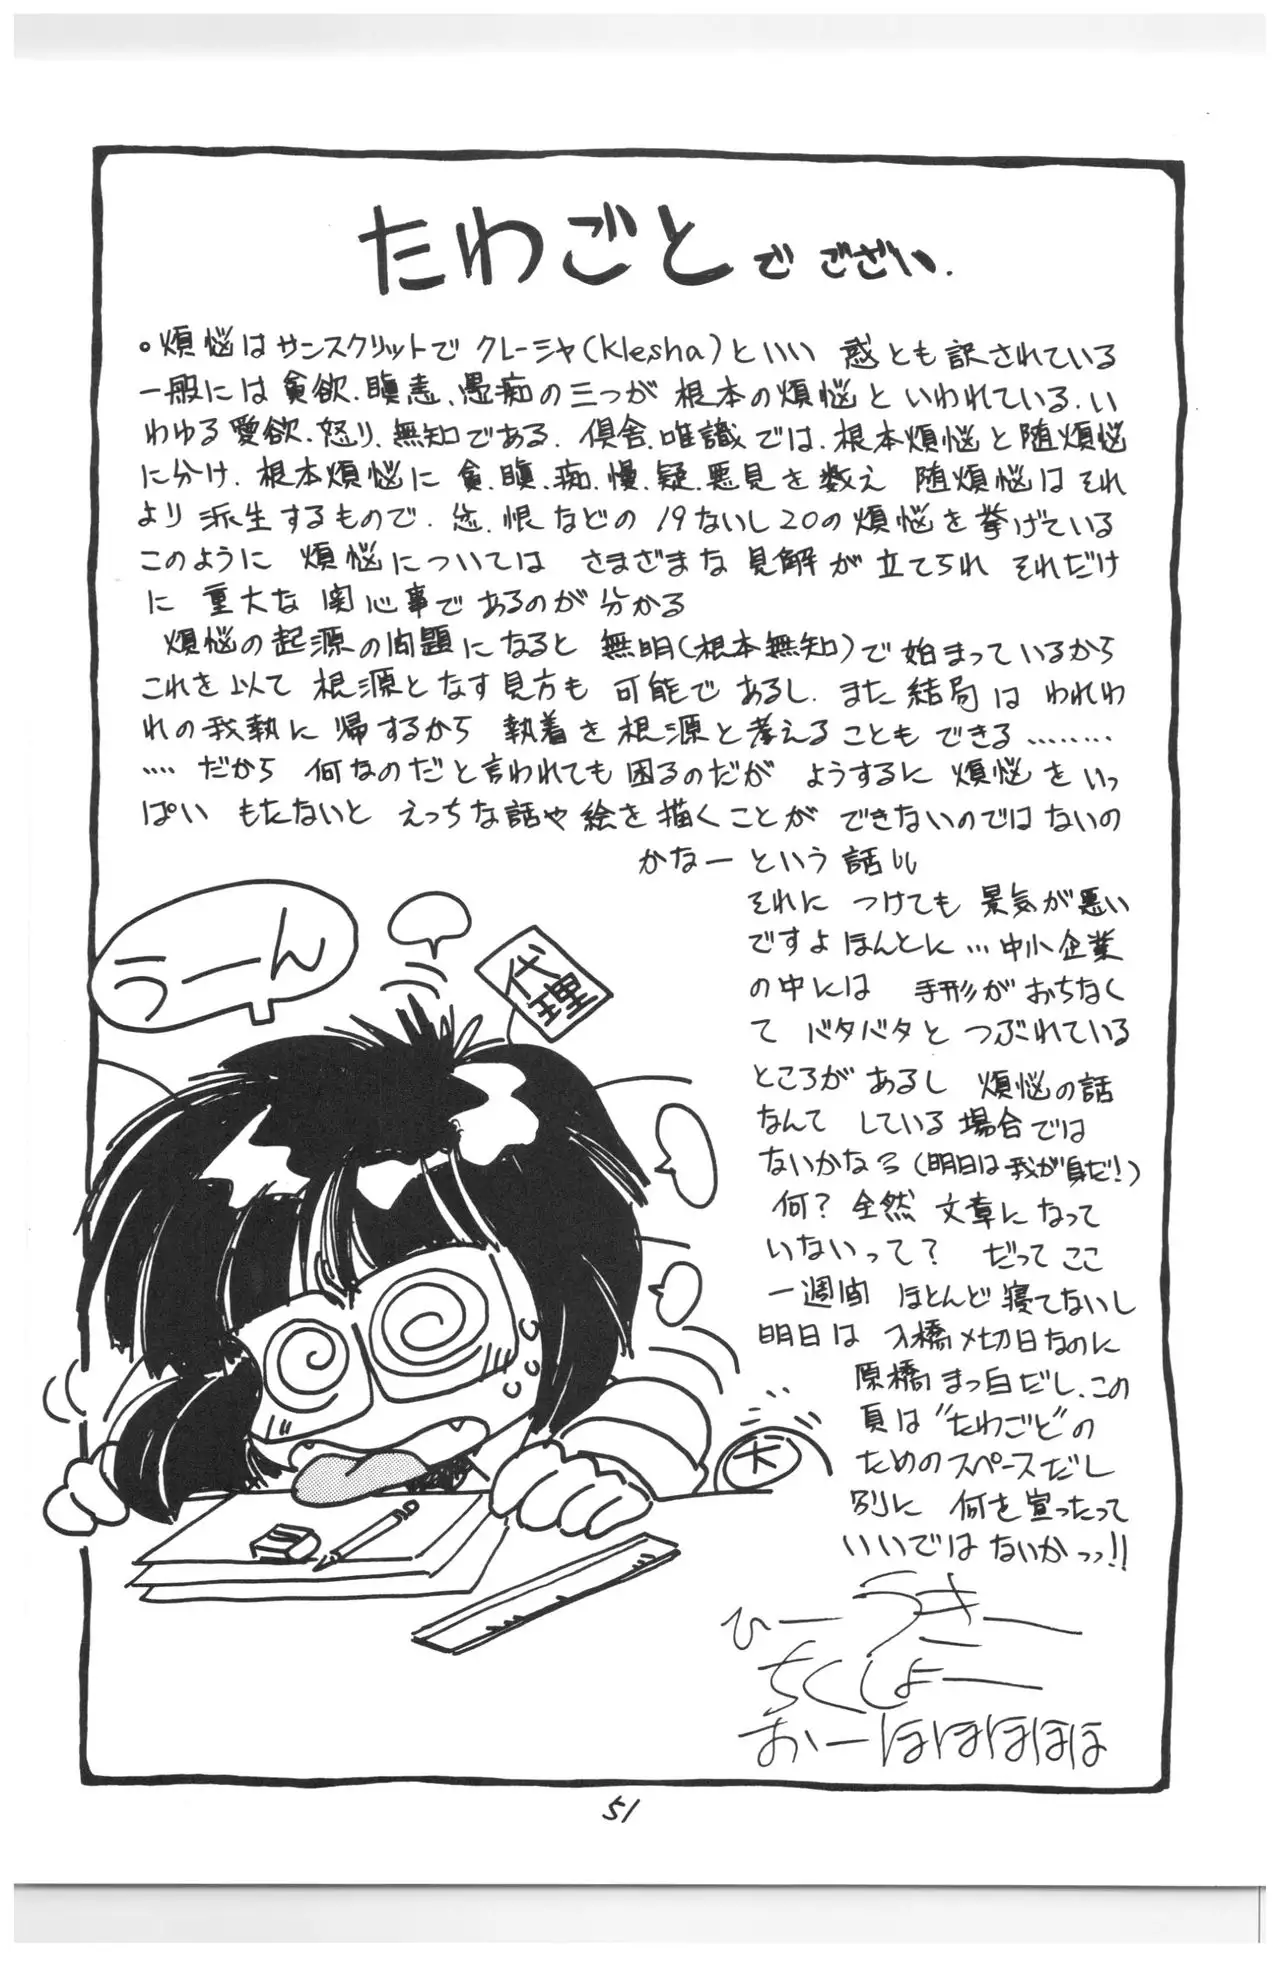 たわごとでござい.
。煩悩はサンスクリットでクレーシャ(Klesha)といい 惑とも訳されている
一般には貪欲.瞋恚.愚痴の三つが 根本の煩悩といわれている.い
わゆる愛欲.怒り.無知である.倶舎.唯識では.根本煩悩と随煩悩
に分け.根本煩悩に 貪.瞋.痴.慢.疑.悪見を数え 随煩悩はそれ
より派生するもので.忿.恨などの19ないし20の煩悩を挙げている
このように 煩悩については さまざまな見解が立てられ それだけ
に 重大な関心事であるのが分かる
煩悩の起源の問題になると 無明(根本無知)で始まっているから
これを以て 根源となす見方も 可能であるし.また結局は われわ
れの我執に 帰するから 執着を根源と考えることもできる………
…. だから 何なのだと言われても困るのだが ようするに 煩悩をいっ
ぱい もたないと えっちな話や絵を描くことが できないのではないの
かなー という 話
それに つけても 景気が悪い
ですよほんとに…中小企業
の中には 手形がおちなく
て バタバタと つぶれている
ところがあるし 煩悩の話
なんて している場合では
ないかなろ(明日は我が身だ!)
何? 全然 文章になって
いないって? だってここ
一週間 ほとんど寝てないし
明日は 入稿〆切日なのに
原稿まっ白だし.この
頁は"たわごと"の
ためのスペースだし
別に 何を宣ったって
いいではないかっっ!!
ひー うきー
ちくしょー
おーほほほほほ
うーん
代理
大
51